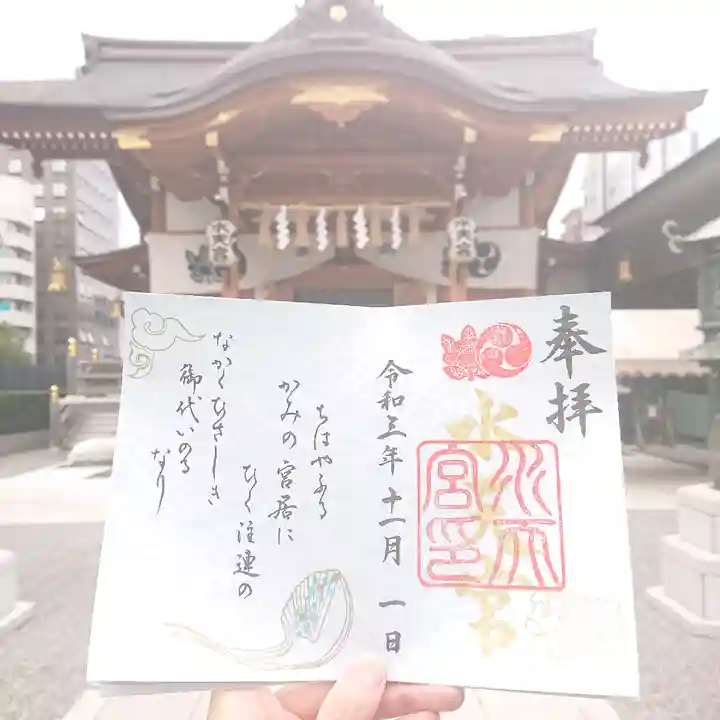 水天宮
水天宮
奉拝
水天宮
水天宮印
令和三年 十一月 一日
ちはやふる
かみの宮居に
ひく注連の
なかくひさしき
御代いのる
なり